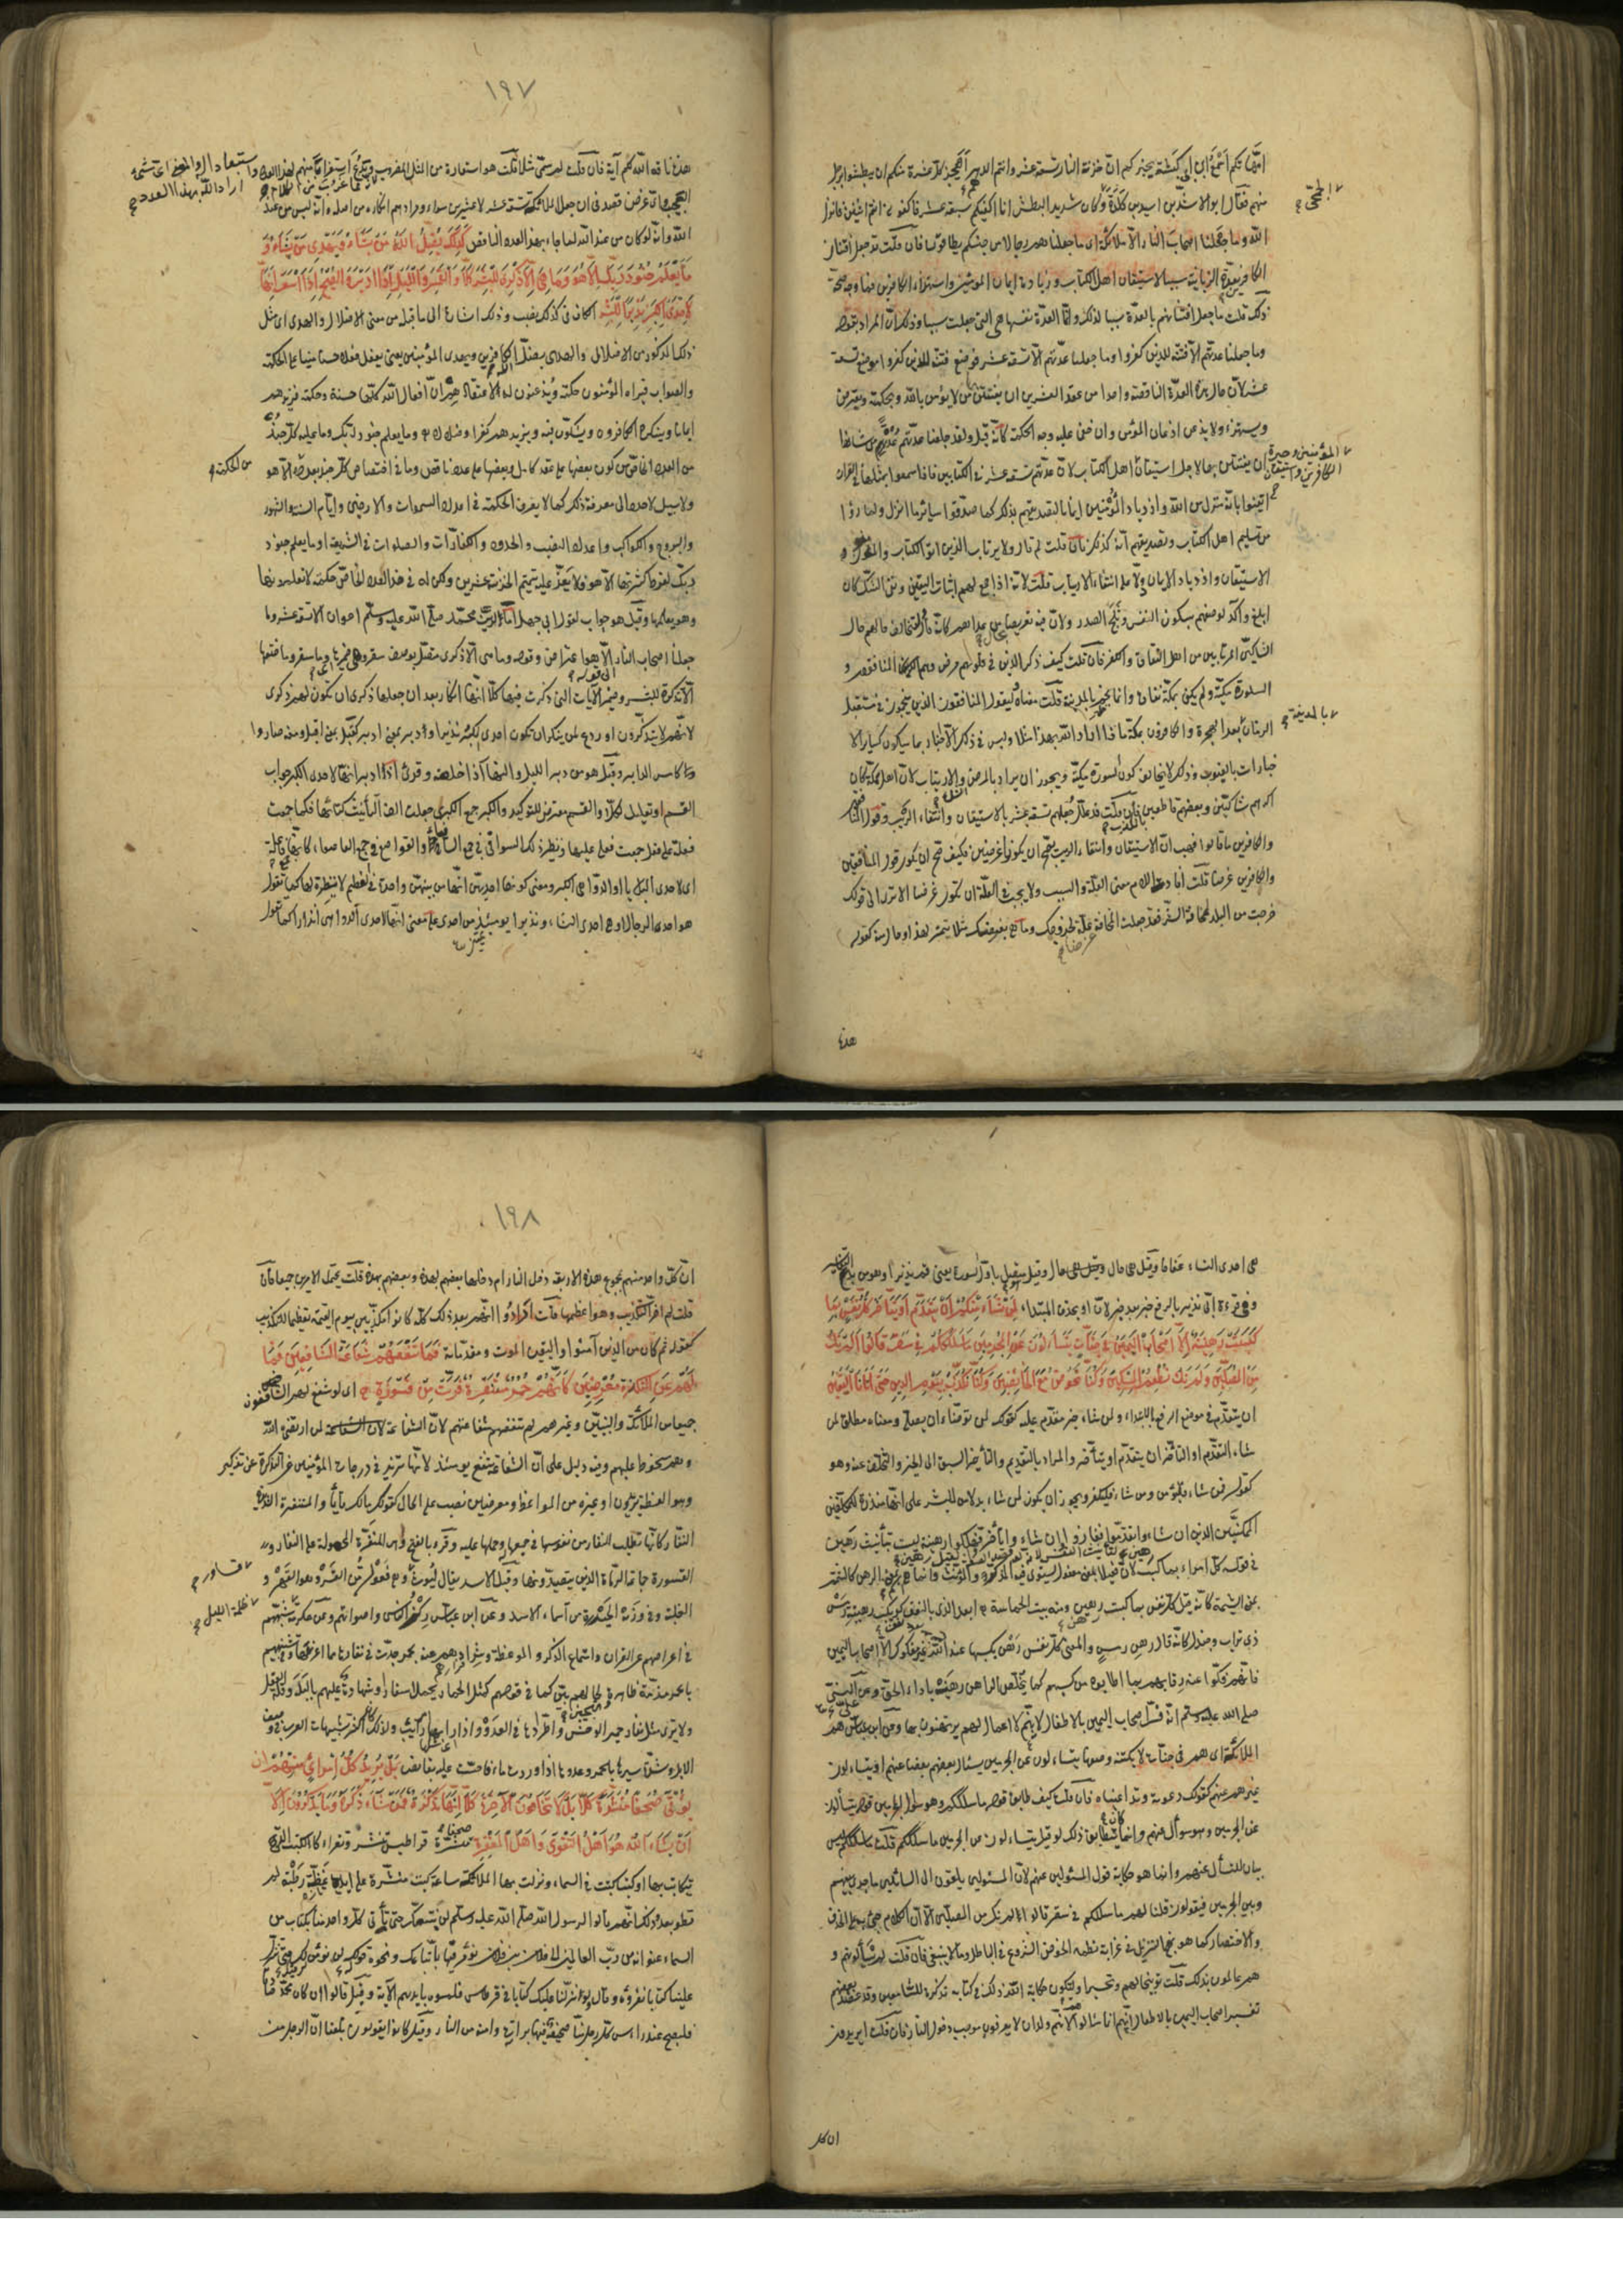 امهاتكم اسمع ابن ابي كبشة يخبركم ان خزنة النار تسعة عشر وانتم الدهم ايعجز كل عشرة منكم ان يبطشوا برجل
منهم فقال ابو الاشدين اسيد بن كلدة وكان شديد البطش انا اكفيكم سبعة عشر فاكفوني انتم اثنين فانزل
الجمحى صح
الله وما جعلنا اصحاب النار الا ملائكة اى ما جعلناهم رجالا من جنسكم يطاقون فان قلت قد جعل افتنان
الكافرين بعدة الزبانية سببا لاستيقان اهل الكتاب وزيادة ايمان المؤمنين واستهزاء الكافرين فما وجه صحة
ذلك قلت ما جعل افتتانهم بالعدة سببا لذلك وانما العدة نفسها هى التى جعلت سببا وذلك ان المراد بقوله
وما جعلنا عدتهم الا فتنة للذين كفروا وما جعلنا عدتهم الا تسعة عشر فوضع فتنة للذين كفروا موضع تسعة
عشر لان حال هذه العدة الناقصة واحدا من عقد العشرين ان يفتتن بها من لا يؤمن بالله وبحكمته ويعترض
ويستهزئ ولا يذعن اذعان المؤمن وان خفى عليه وجه الحكمة كانه قيل ولقد جعلنا عدتهم عدة من شانها
ان يفتتن بها لاجل استيقان اهل الكتاب لان عدتهم تسعة عشر فى الكتابين فاذا سمعوا بمثلها فى القران
المؤمنين وحيرة
الكافرين واستيقان صح
ايقنوا بانه منزل من الله وازدياد المؤمنين ايمانا لتصديقهم بذلك كما صدقوا سائر ما انزل ولما راوا
من تسليم اهل الكتاب وتصديقهم انه كذلك فان قلت لم قال ولا يرتاب الذين اوتوا الكتاب والمؤمنون و
الاستيقان وازدياد الايمان دالا على انتفاء الارتياب قلت لانه اذا جمع لهم اثبات اليقين ونفى الشك كان
ابلغ وآكد لوصفهم بسكون النفس وثلج الصدر ولان فيه تعريضا بحال من عداهم كانه قال ولتخالف حالهم حال
الشاكين المرتابين من اهل النفاق والكفر فان قلت كيف ذكر الذين فى قلوبهم مرض وهم المنافقون و
السورة مكية ولم يكن بمكة نفاق وانما نجم بالمدينة قلت معناه ليقول المنافقون الذين ينجمون فى مستقبل
بالمدينة صح
الزمان بعد الهجرة والكافرون بمكة ماذا اراد الله بهذا مثلا وليس فى ذلك الا اخبار بما سيكون كسائر الا
خبارات بالغيوب وذلك لا يخالف كون السورة مكية ويجوز ان يراد بالمرض الشك والارتياب لان اهل مكة كان
اكثرهم شاكين وبعضهم قاطعين بالكذب فان قلت قد علل جعلهم تسعة عشر بالاستيقان وانتفاء الريب وقول المنافقين
والكافرين ما قالوا فهب ان الاستيقان وانتفاء الريب يصح ان يكونا غرضين فكيف صح ان يكون قول المنافقين
والكافرين غرضا قلت افادت اللام معنى العلة والسبب ولا يجب فى العلة ان تكون غرضا الا ترى الى قولك
خرجت من البلد لمخافة الشر فقد جعلت المخافة علة لخروجك وما هى بغرضك مثلا تمييز لهذا او حال منه كقوله
هذه
١٩٧
هذه ناقة الله لكم آية فان قلت لم سموه مثلا قلت هو استعارة من المثل المضروب
واستبعادا له والمعنى اى شئ
اراد الله بهذا العدد صح
العجيب واى غرض قصد فى ان جعل الملائكة تسعة عشر لا عشرين سواء ومرادهم انكاره من اصله وانه ليس من عند
الله وانه لو كان من عند الله لما جاء بهذا العدد الناقص كذلك يضل الله من يشاء ويهدى من يشاء و
ما يعلم جنود ربك الا هو وما هى الا ذكرى للبشر كلا والقمر والليل اذا ادبر والصبح اذا اسفر انها
لاحدى الكبر نذيرا للبشر الكاف فى كذلك نصب وذلك اشارة الى ما قبله من معنى الاضلال والهدى اى مثل
ذلك المذكور من الاضلال والهدى يضل الكافرين ويهدى المؤمنين يعنى يفعل فعلا حسنا مبنيا على الحكمة
والصواب فيراه المؤمنون حكمة ويذعنون له لاعتقادهم ان افعال الله كلها حسنة وحكمة فيزيدهم
ايمانا وينكره الكافرون ويشكون فيه ويزيدهم كفرا وضلالا وما يعلم جنود ربك وما عليه كل جند
من العدد الخاص من كون بعضها على عقد كامل وبعضها على عدد ناقص وما فى اختصاص كل جند بعدده الا هو
من الحكمة صح
ولا سبيل لاحد الى معرفة ذلك كما لا يعرف الحكمة فى اعداد السموات والارضين وايام السنة والشهور
والبروج والكواكب واعداد النصب والحدود والكفارات والصلوات فى الشريعة او ما يعلم جنود
ربك لفرط كثرتها الا هو فلا يعز عليه تتميم الخزنة عشرين ولكن له فى هذا العدد الخاص حكمة لا تعلمونها
وهو يعلمها وقيل هو جواب لقول ابى جهل اما لرب محمد صلى الله عليه وسلم اعوان الا تسعة عشر وما
جعلنا اصحاب النار الا هو اعتراض وقوله وما هى الا ذكرى متصل بوصف سقر وهى ضميرها اى وما سقر وصفتها
الا تذكرة للبشر وضمير الآيات التى ذكرت فيها كلا انكار بعد ان جعلها ذكرى ان تكون لهم ذكرى
لانهم لا يتذكرون او ردع لمن ينكر ان تكون احدى الكبر نذيرا ودبر بمعنى ادبر كقبل بمعنى اقبل ومنه صاروا
كامس الدابر وقيل هو من دبر الليل والنهار اذا خلفه وقرئ اذا ادبر انها لاحدى الكبر جواب
القسم او تعليل لكلا والقسم معترض للتوكيد والكبر جمع الكبرى جعلت الف التأنيث كتائها فكما جمعت
فعلة على فعل جمعت فعلى عليها ونظير ذلك السوافى فى جمع السافياء والقواصع فى جمع القاصعاء كانها فاعلة
اى لاحدى البلايا او الدواهى الكبر ومعنى كونها احديهن انها من بينهن واحدة فى العظم لا نظيرة لها كما تقول
هو احد الرجال وهى احدى النساء ونذيرا تمييز من احدى على معنى انها لاحدى الدواهى انذارا كما تقول
هى احدى النساء عفافا وقيل هى حال وقيل هو متصل باول السورة يعنى قم نذيرا وهو من بدع التفاسير
وفى قراءة ابى نذير بالرفع خبر بعد خبر لان او بحذف المبتدا لمن شاء منكم ان يتقدم او يتأخر كل نفس بما
كسبت رهينة الا اصحاب اليمين فى جنات يتساءلون عن المجرمين ما سلككم فى سقر قالوا لم نك
من المصلين ولم نك نطعم المسكين وكنا نخوض مع الخائضين وكنا نكذب بيوم الدين حتى اتانا اليقين
ان يتقدم فى موضع الرفع بالابتداء ولمن شاء خبر مقدم عليه كقولك لمن توضأ ان يصلى ومعناه مطلق لمن
شاء التقدم او التأخر ان يتقدم او يتأخر والمراد بالتقدم والتأخر السبق الى الخير والتخلف عنه وهو
كقوله فمن شاء فليؤمن ومن شاء فليكفر ويجوز ان يكون لمن شاء بدلا من للبشر على انها منذرة للمكلفين
الممكنين الذين ان شاءوا تقدموا ففازوا وان شاءوا تأخروا فهلكوا رهينة ليست بتأنيث رهين
فى قوله كل امرئ بما كسب رهين لتأنيث النفس لانه لو قصدت الصفة لقيل رهين لان فعيلا بمعنى مفعول يستوى فيه المذكر والمؤنث وانما هى اسم بمعنى الرهن كالشتيمة
بمعنى الشتم كانه قيل كل نفس بما كسبت رهين ومنه بيت الحماسة ابعد الذى بالنعف نعف كويكب رهينة رمس
ذى تراب وجندل كانه قال رهن رمس والمعنى كل نفس رهن بكسبها عند الله غير مفكوك الا اصحاب اليمين
فانهم فكوا عنه رقابهم بما اطابوه من كسبهم كما يخلص الراهن رهنه باداء الحق وعن النبى
صلى الله عليه وسلم انه فسر اصحاب اليمين بالاطفال لانهم لا اعمال لهم يرتهنون بها وعن ابن عباس هم
الملائكة اى هم فى جنات لا يكتنه وصفها يتساءلون عن المجرمين يسأل بعضهم بعضا عنهم او يتساءلون
غيرهم عنهم كقولك دعوته وتداعيناه فان قلت كيف طابق قوله ما سلككم وهو سؤال للمجرمين قوله يتساءلون
عن المجرمين وهو سؤال عنهم وانما كان يتطابق ذلك لو قيل يتساءلون المجرمين ما سلككم قلت ما سلككم ليس
ببيان للتساءل عنهم وانما هو حكاية قول المسئولين عنهم لان المسئولين يلقون الى السائلين ما جرى بينهم
وبين المجرمين فيقولون قلنا لهم ما سلككم فى سقر قالوا لم نك من المصلين الا ان الكلام جئ به على الحذف
والاختصار كما هو نهج التنزيل فى غرابة نظمه الخوض الشروع فى الباطل وما لا ينبغى فان قلت لم يسألونهم و
هم عالمون بذلك قلت توبيخا لهم وتحسيرا وليكون حكاية الله ذلك فى كتابه تذكرة للسامعين وقد عضد بعضهم
تفسير اصحاب اليمين بالاطفال انهم انما سألوهم لانهم ولدان لا يعرفون موجب دخول النار فان قلت ايريدون
ان كل
١٩٨
ان كل واحد منهم بمجموع هذه الاربعة دخل النار ام دخلها بعضهم بهذه وبعضهم بهذه قلت يحتمل الامرين جميعا فان
قلت لم اخر التكذيب وهو اعظمها قلت ارادوا انهم بعد ذلك كله كانوا مكذبين بيوم القيمة تعظيما للتكذيب
كقوله ثم كان من الذين آمنوا واليقين الموت ومقدماته فما تنفعهم شفاعة الشافعين فما
لهم عن التذكرة معرضين كانهم حمر مستنفرة فرت من قسورة اى لو شفع لهم الشافعون
جميعا من الملائكة والنبيين وغيرهم لم تنفعهم شفاعتهم لان الشفاعة لمن ارتضاه الله
وهم مسخوط عليهم وفيه دليل على ان الشفاعة تنفع يومئذ لانها تزيد فى درجات المؤمنين عن التذكرة عن تذكير
وهو العظة يريد القران او غيره من المواعظ ومعرضين نصب على الحال كقولك ما لك قائما والمستنفرة الشديدة
النفار كانها تطلب النفار من نفوسها فى جمعها وحملها عليه وقرئ بالفتح وهى المنفرة المحمولة على النفار و
القسورة جماعة الرماة الذين يتصيدونها وقيل الاسد يقال ليوث قساور وهى فعولة من القسر وهو القهر و
قساور صح
الغلبة وفى وزنه الحيدرة من اسماء الاسد وعن ابن عباس ركز الناس واصواتهم وعن عكرمة شبههم
ظلمة الليل صح
فى اعراضهم عن القران واستماع الذكر والموعظة وشرادهم عنه بحمر جدت فى نفارها مما افزعها وفى تشبيههم
بالحمر مذمة ظاهرة وتهجين لحالهم بين كما فى قوله كمثل الحمار يحمل اسفارا وشهادة عليهم بالبله وقلة العقل
ولا ترى مثل نفار حمير الوحش واطرادها فى العدو اذا رابها رائب ولذلك كان اكثر تشبيهات العرب فى وصف
الابل وشدة سيرها بالحمر وعدوها اذا وردت ماء فاحست عليه بقانص بل يريد كل امرئ منهم ان
يؤتى صحفا منشرة كلا بل لا يخافون الاخرة كلا انه تذكرة فمن شاء ذكره وما يذكرون الا
ان يشاء الله هو اهل التقوى واهل المغفرة صحفا منشرة قراطيس تنشر وتقرأ كالكتب التى
يتكاتب بها او كتبا كتبت فى السماء ونزلت بها الملائكة ساعة كتبت منشرة على ايديها غضة رطبة لم
تطو بعد وذلك انهم قالوا لرسول الله صلى الله عليه وسلم لن نتبعك حتى تأتى كل واحد منا بكتاب من
السماء عنوانه من رب العالمين الى فلان بن فلان نؤمر فيها باتباعك ونحوه قوله لن نؤمن لرقيك حتى تنزل
علينا كتابا نقرؤه وقال ولو نزلنا عليك كتابا فى قرطاس فلمسوه بايديهم الآية وقيل قالوا ان كان محمد صادقا
فليصبح عند رأس كل رجل منا صحيفة فيها براءته وامنه من النار وقيل كانوا يقولون بلغنا ان الرجل من